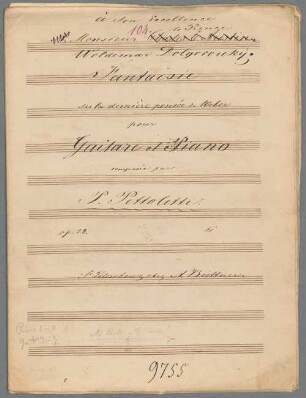 à Son Excellence
Monsieur le Prince
104
Woldemar Dolgorouky;
Fantaisie
sur la dernière pensée de Weber
pour
Guitare et Piano
composée par
P. Pettoletti.
op. 22.
St Petersbourg chez A. Büttner
9755